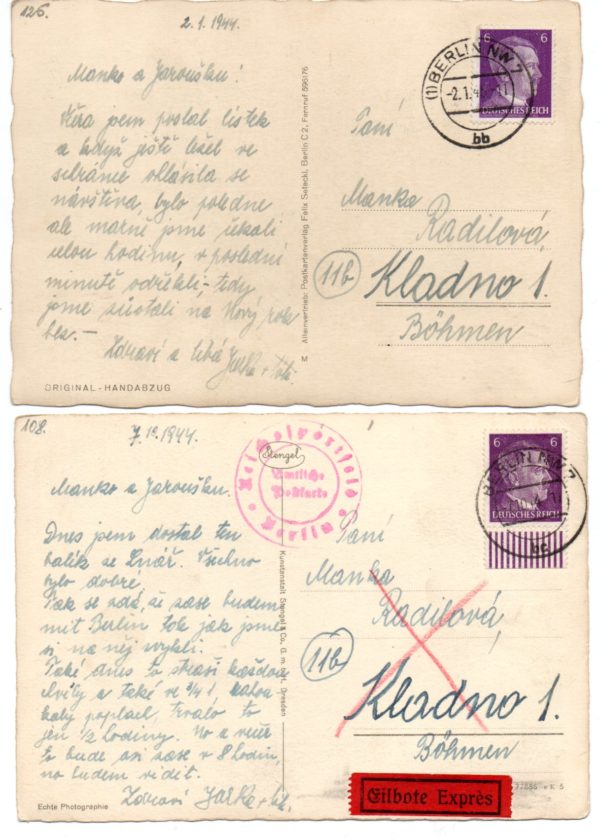 126.
2.1.1944.
Manko a Jaroušku!
Včera jsem poslal lístek
a když ještě ležel ve
schránce ohlásila se
návštěva, bylo poledne
ale marně jsme čekali
celou hodinu, v poslední
minutě odřekli, tedy
jsme zůstali na Nový rok
bez.-
Zdraví a líbá Jarka
ORIGINAL - HANDABZUG
M
Alleinvertrieb: Postkartenverlag Felix Setecki, Berlin C 2, Fernruf 596176
6 6
DEUTSCHES REICH
(1) BERLIN NW 7
-2.1.4
bb
Paní
Manka
Radilová,
11b
Kladno 1.
Böhmen
108.
7.1º 1944.
Stengel
Reichssportfeld
Amtliche
Postkarte
Berlin
Manko a Jaroušku.
Dnes jsem dostal ten
balík se Lnář. Všechno
bylo dobré.
Tak se zdá, že zase budeme
mít Berlin tak jak jsme
si na něj zvykli.
Také dnes to straší každou
chvíli a také ve 3/4 1.
poplach, trvalo to
jen 1/2 hodiny. No a
to bude asi zase v 8 hodin,
no budem vidět.
Zdraví Jarka
Echte Photographie
Kunstanstalt Stengel & Co. G. m. b. H., Dresden
6 6
DEUTSCHES REICH
BERLIN NW 7
bc
Paní
Manka
Radilová,
11b
Kladno 1.
Böhmen
Eilbote Exprès